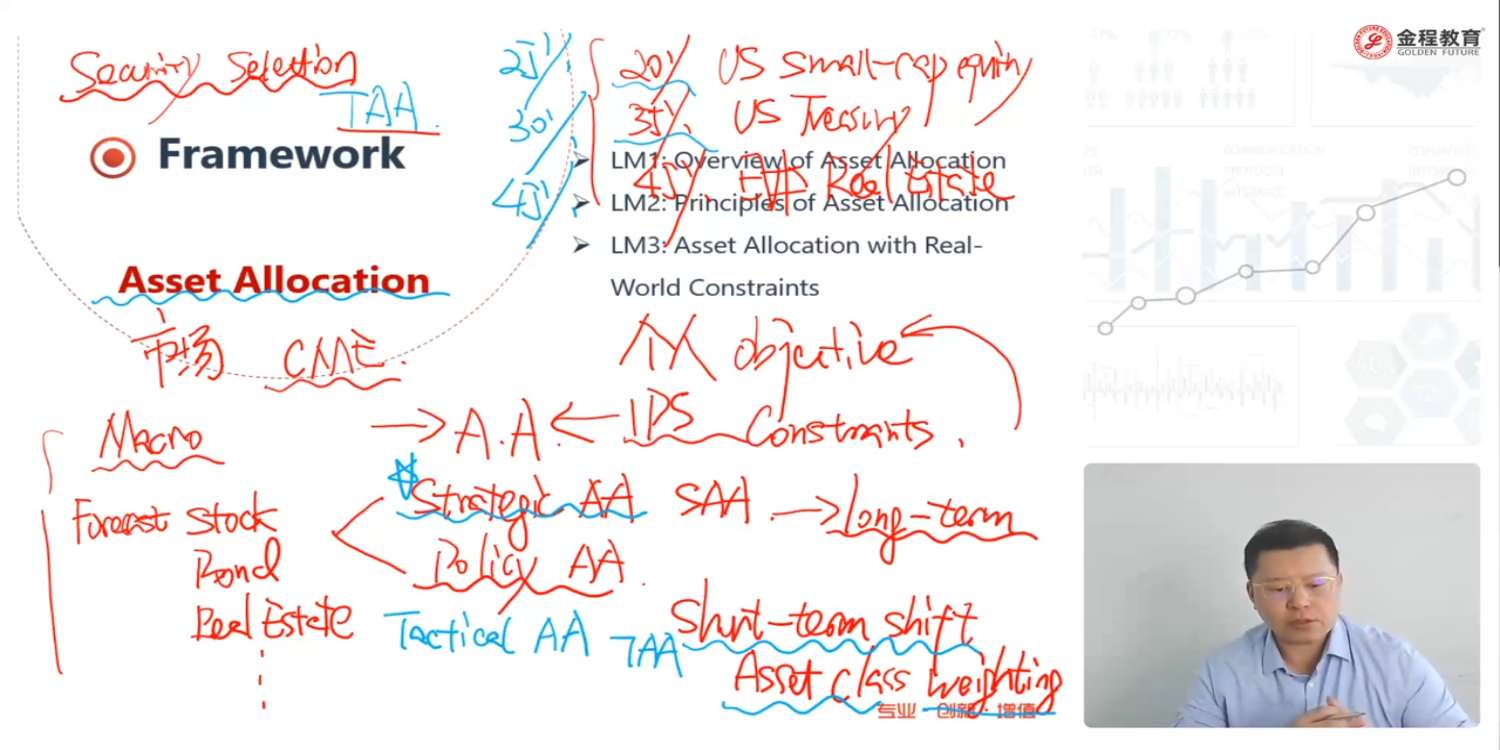 金程教育
GOLDEN FUTURE
Security Selection
TAA
25%
30%
45%
20% US small-cap equity
35% US Treasury
45% Real Estate
Framework
LM1: Overview of Asset Allocation
LM2: Principles of Asset Allocation
LM3: Asset Allocation with Real-
World Constraints
Asset Allocation
市场 CME
个人 objective
→ A.A ← IPS Constraints.
Macro
Forecast Stock
Bond
Real Estate
Strategic AA SAA. → Long-term
Policy AA
Tactical AA TAA
Short-term shift
Asset class weighting
专业·创新·增值